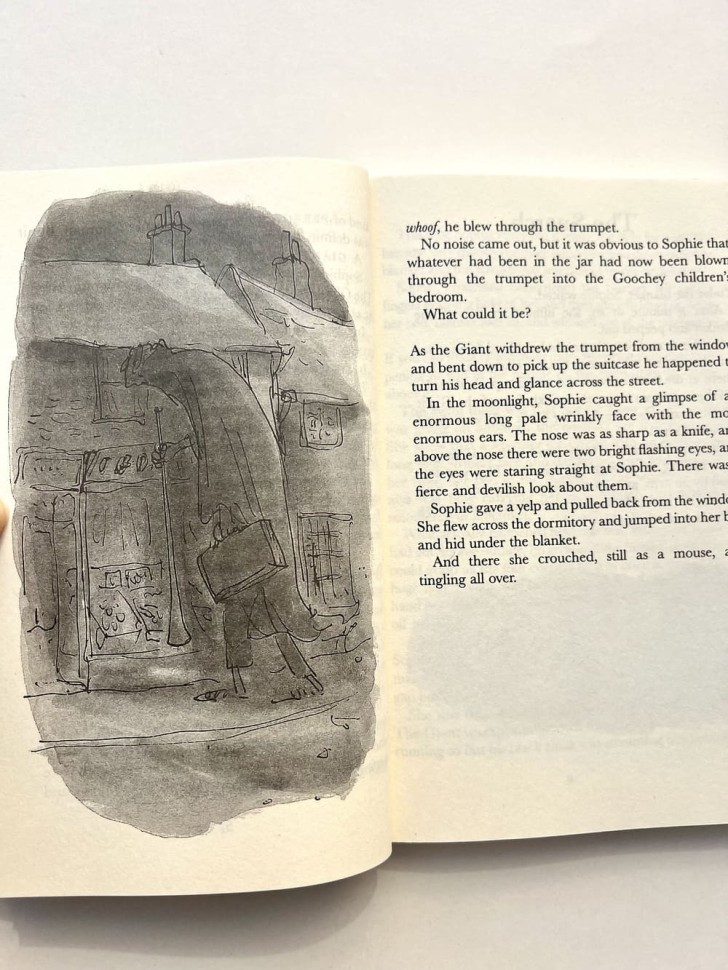 whoof, he blew through the trumpet.
No noise came out, but it was obvious to Sophie that
whatever had been in the jar had now been blown
through the trumpet into the Goochey children's
bedroom.
What could it be?
As the Giant withdrew the trumpet from the window
and bent down to pick up the suitcase he happened t
turn his head and glance across the street.
In the moonlight, Sophie caught a glimpse of a
enormous long pale wrinkly face with the mo
enormous ears. The nose was as sharp as a knife, a
above the nose there were two bright flashing eyes, a
the eyes were staring straight at Sophie. There was
fierce and devilish look about them.
Sophie gave a yelp and pulled back from the windo
She flew across the dormitory and jumped into her b
and hid under the blanket.
And there she crouched, still as a mouse, a
tingling all over.